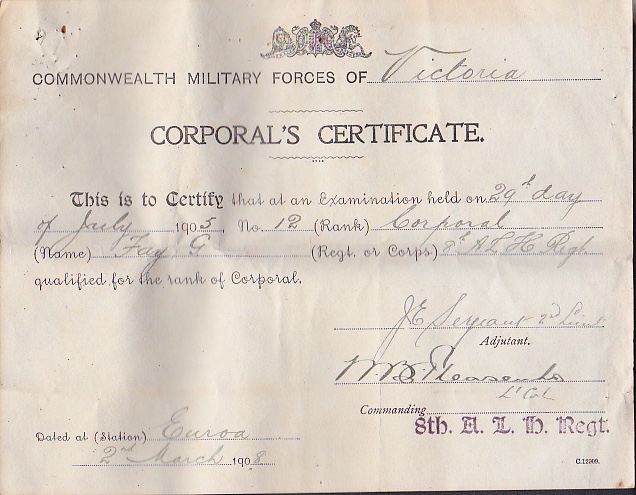 COMMONWEALTH MILITARY FORCES OF Victoria
CORPORAL'S CERTIFICATE.
This is to Certify that at an Examination held on 29th day
of July 1905, No. 12 (Rank) Corporal
(Name) Fay G (Regt. or Corps) 8th A L H Regt
qualified for the rank of Corporal.
J E Sergeant 2d Lieut
Adjutant.
Lt Col
Commanding
8th. A. L. H. Regt.
Dated at (Station) Euroa
2nd March 1908
C.12909.